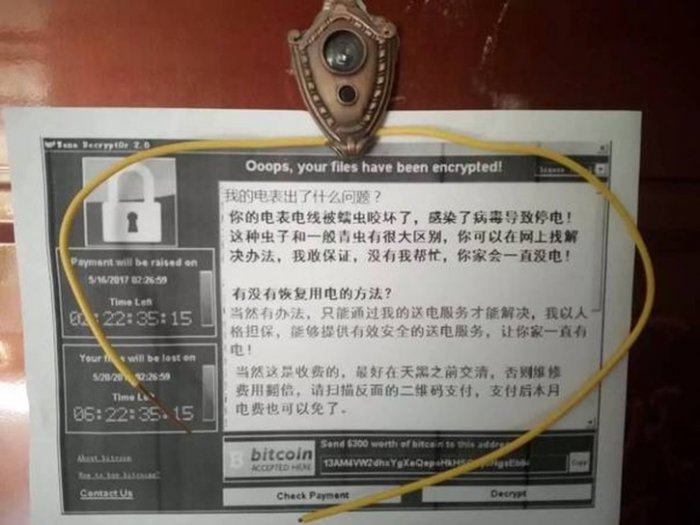 Decrypt0r 2.0
Ooops, your files have been encrypted!
我的电表出了什么问题？
你的电表电线被蠕虫咬坏了，感染了病毒导致停电！
这种虫子和一般青虫有很大区别，你可以在网上找解
决办法，我敢保证，没有我帮忙，你家会一直没电！
有没有恢复用电的方法？
当然有办法，只能通过我的送电服务才能解决，我以人
格担保，能够提供有效安全的送电服务，让你家一直有
电！
当然这是收费的，最好在天黑之前交清，否则维修
费用翻倍，请扫描反面的二维码支付，支付后本月
电费也可以免了。
Payment will be raised on
5/16/2017 02:26:59
Time Left
:22:35:15
Your files will be lost on
5/20/2017 02:26:59
Time Left
06:22:35:15
About bitcoin
How to buy bitcoins?
Contact Us
bitcoin
ACCEPTED HERE
Send $300 worth of bitcoin to this address
Copy
Check Payment
Decrypt